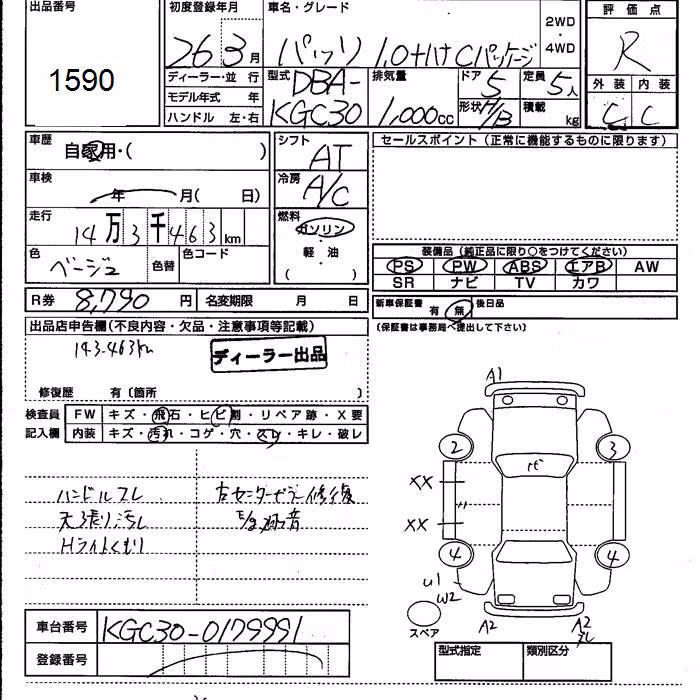 出品番号
1590
初度登録年月
26 3月
車名・グレード
パッソ 1.0+ハナCパッケージ
2WD
・
4WD
評価点
R
ディーラー・並 行
モデル年式 年
ハンドル 左・右
型式
DBA-
KGC30
排気量
1,000cc
ドア
5
形状
H/B
定員
5人
積載
kg
外装
C
内装
C
車歴
自家用・( )
車検
年 月( 日)
走行
14万3千463km
色
ベージュ
色替
色コード
シフト
AT
冷房
A/C
燃料
ガソリン
・
軽・油
( )
セールスポイント(正常に機能するものに限ります)
装備品(純正品に限り○をつけてください)
PS PW ABS エアB AW
SR ナビ TV カワ
R券 8,790円 名変期限 月 日
新車保証書 有 無 後日品
(保証書は事務局へ提出して下さい)
出品店申告欄(不良内容・欠品・注意事項等記載)
143.463km
ディーラー出品
修復歴 有〔箇所 〕
検査員
記入欄
FW キズ・飛石・ヒビ割・リペア跡・X要
内装 キズ・汚れ・コゲ・穴・スレ・キレ・破レ
ハンドルスレ
天張り汚レ
Hライトくもり
右センターピラー修復
音
A1
2
3
XX
XX
4
4
U1
W2
スペア
A2
A2
車台番号 KGC30-0179991
登録番号
型式指定
類別区分